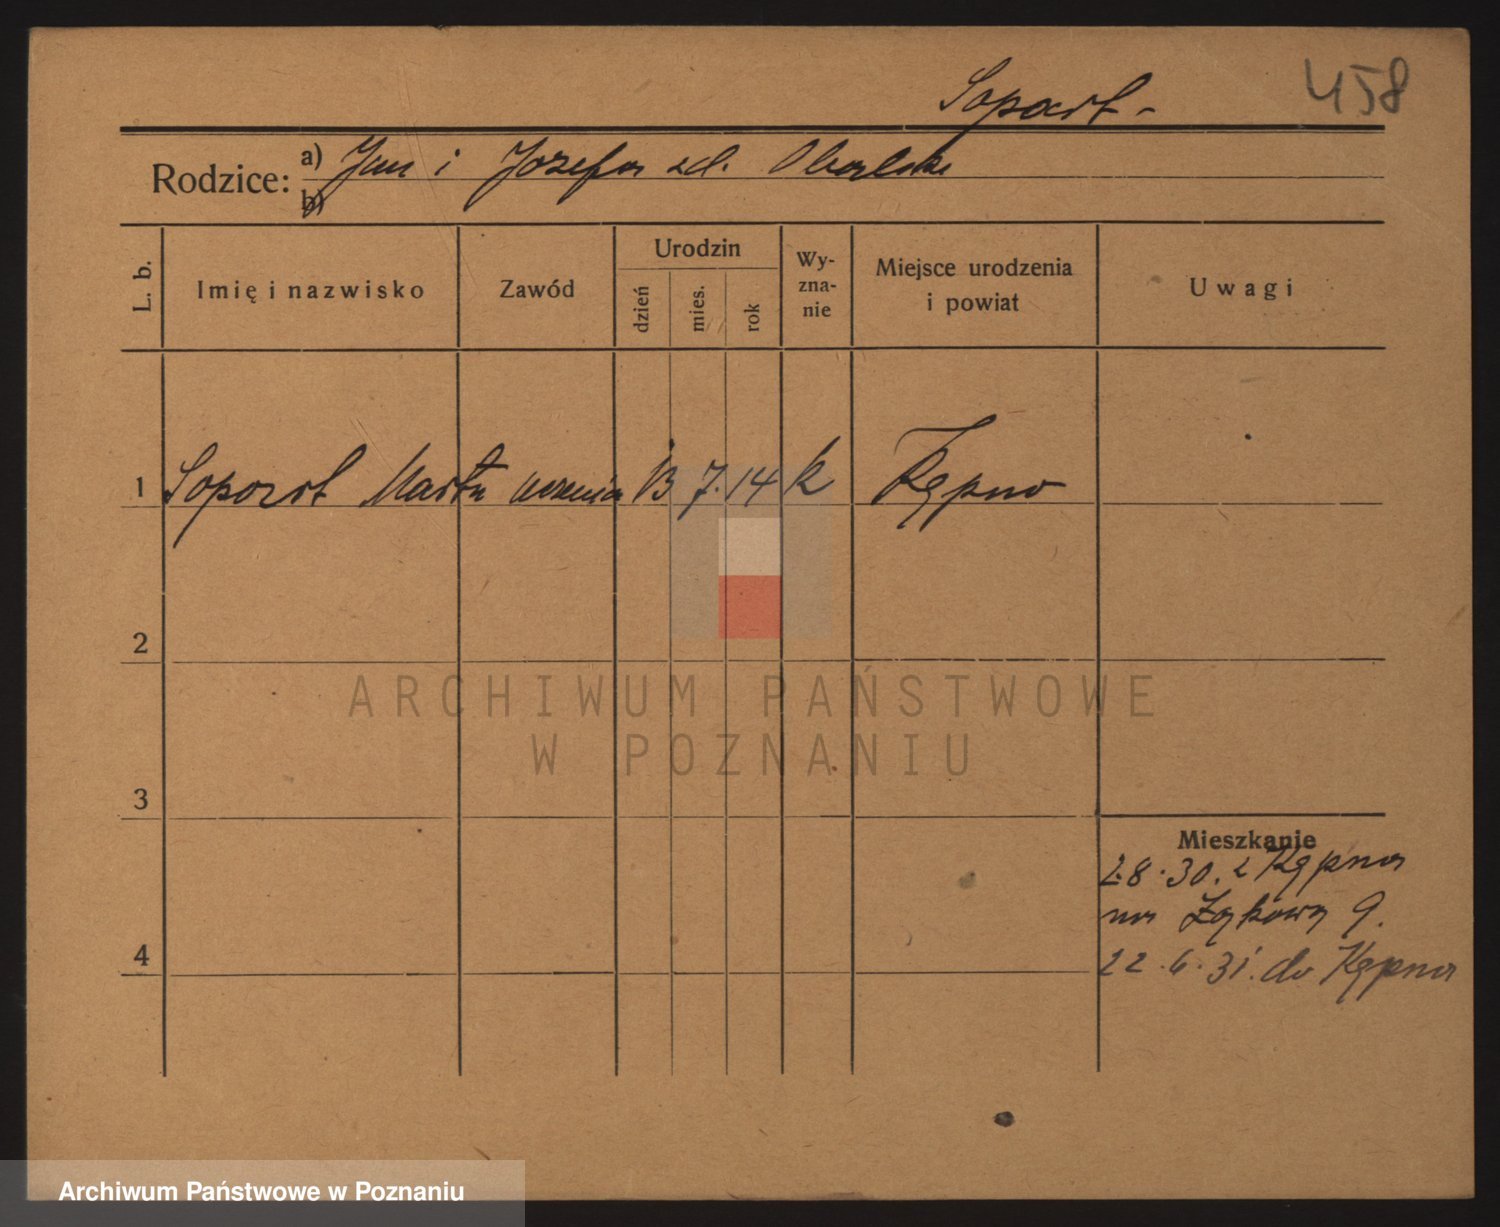 458
Sopart -
Rodzice: a) Jan i Józefa zd. Obalska
b)
L. b. Imię i nazwisko Zawód Urodzin dzień mies. rok Wyznanie Miejsce urodzenia i powiat Uwagi
1 Sopart Marta uczenica 13 7. 14 k Kępno
2
3
4
Mieszkanie
28.30. z Kępna
na Łąkową 9.
22.6.31. do Kępna
ARCHIWUM PAŃSTWOWE
W POZNANIU
Archiwum Państwowe w Poznaniu